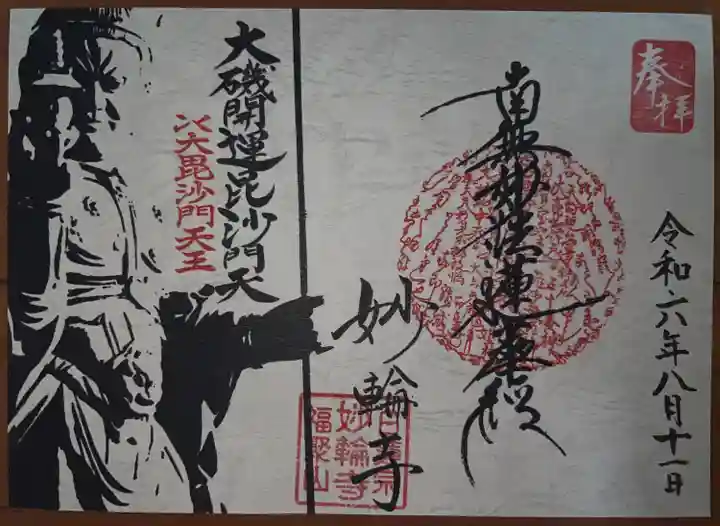 奉拝
南無妙法蓮華経
妙輪寺
令和六年八月十一日
大磯開運毘沙門天
大毘沙門天王
日蓮宗
妙輪寺
福聚山